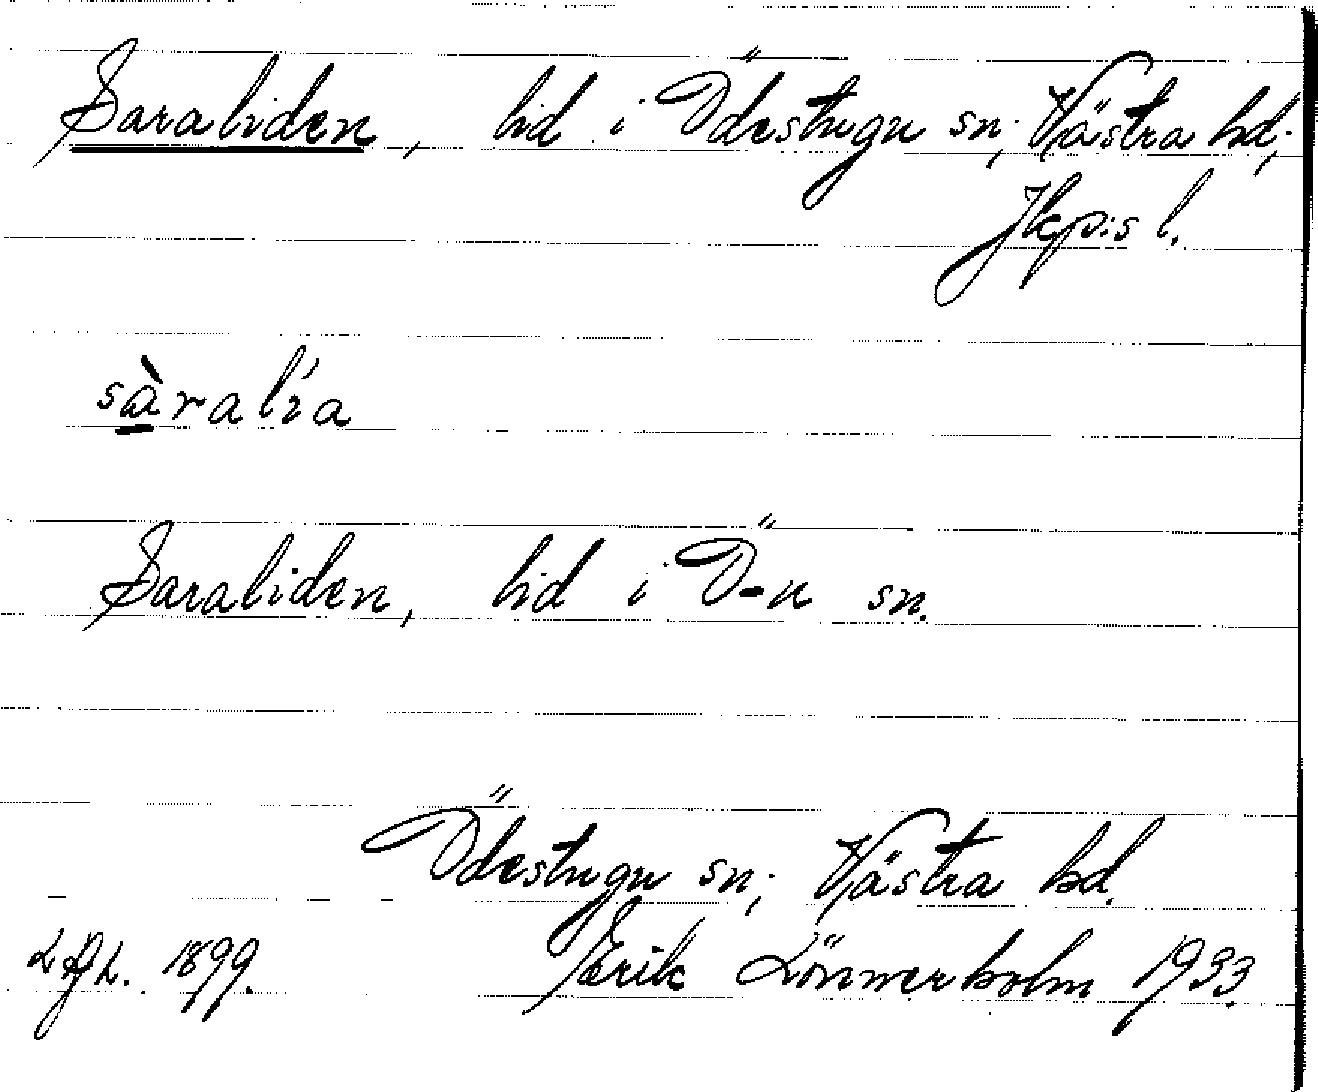 Saraliden, lid i Ödestugu sn; Västra hd;
Jkp:s l.
sàralía
Saraliden, lid i Ö-u sn.
Ödestugu sn; Västra hd.
1899. Erik Lönnerholm 1933.